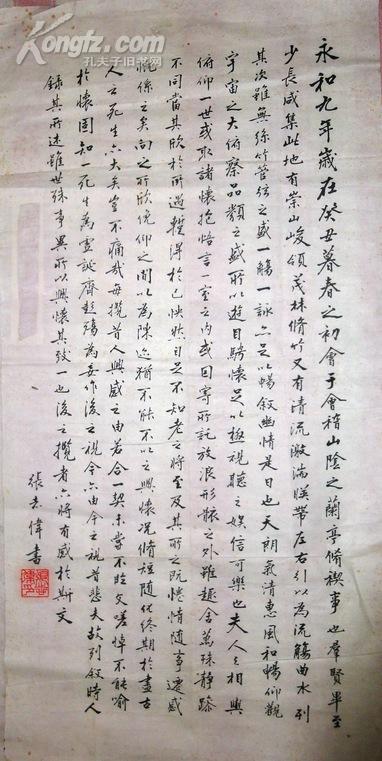 Kongfz.com
孔夫子旧书网
永和九年歲在癸丑暮春之初會于會稽山陰之蘭亭脩禊事也羣賢畢至
少長咸集此地有崇山峻領茂林脩竹又有清流激湍暎帶左右引以為流觴曲水列
其次雖無絲竹管弦之盛一觴一詠亦足以暢敘幽情是日也天朗氣清惠風和暢仰觀
宇宙之大俯察品類之盛所以遊目騁懷足以極視聽之娛信可樂也夫人之相與
俯仰一世或取諸懷抱悟言一室之內或因寄所託放浪形骸之外雖趣舍萬殊靜躁
不同當其欣於所遇蹔得於己快然自足不知老之將至及其所之既惓情隨事遷感
慨係之矣向之所欣俛仰之間以為陳迹猶不能不以之興懷況脩短隨化終期於盡古
人云死生亦大矣豈不痛哉每攬昔人興感之由若合一契未嘗不臨文嗟悼不能喻
於懷固知一死生為虛誕齊彭殤為妄作後之視今亦由今之視昔悲夫故列敘時人
錄其所述雖世殊事異所以興懷其致一也後之攬者亦將有感於斯文
張志偉書